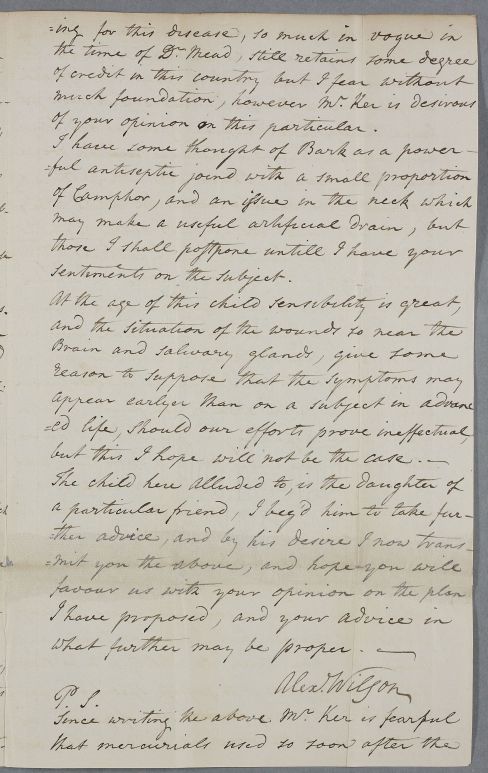 =ing for this disease, so much in vogue in
the time of Dr. Mead, still retains some degree
of credit in this country but I fear without
much foundation, however Mr. Ker is desirous
of your opinion on this particular.
I have some thought of Bark as a power-
=ful antiseptic joind with a small proportion
of Camphor, and an issue in the neck which
may make a useful artificial drain, but
those I shall postpone untill I have your
Sentiments on the subject.
At the age of this child sensibility is great,
and the situation of the wounds so near the
Brain and salivary glands, give some
reason to suppose that the symptoms may
appear earlyer than on a subject in advanc
=ed life, should our efforts prove ineffectual,
but this I hope will not be the case. —
The child here alluded to, is the daughter of
a particular friend, I beg'd him to take fur-
=ther advice, and by his desire I now trans-
=mit you the above, and hope you will
favour us with your opinion on the plan
I have proposed, and your advice in
what further may be proper. —
Alexr. Wilson
P. S.
Since writing the above Mr. Ker is fearful
that mercurials used so soon after the